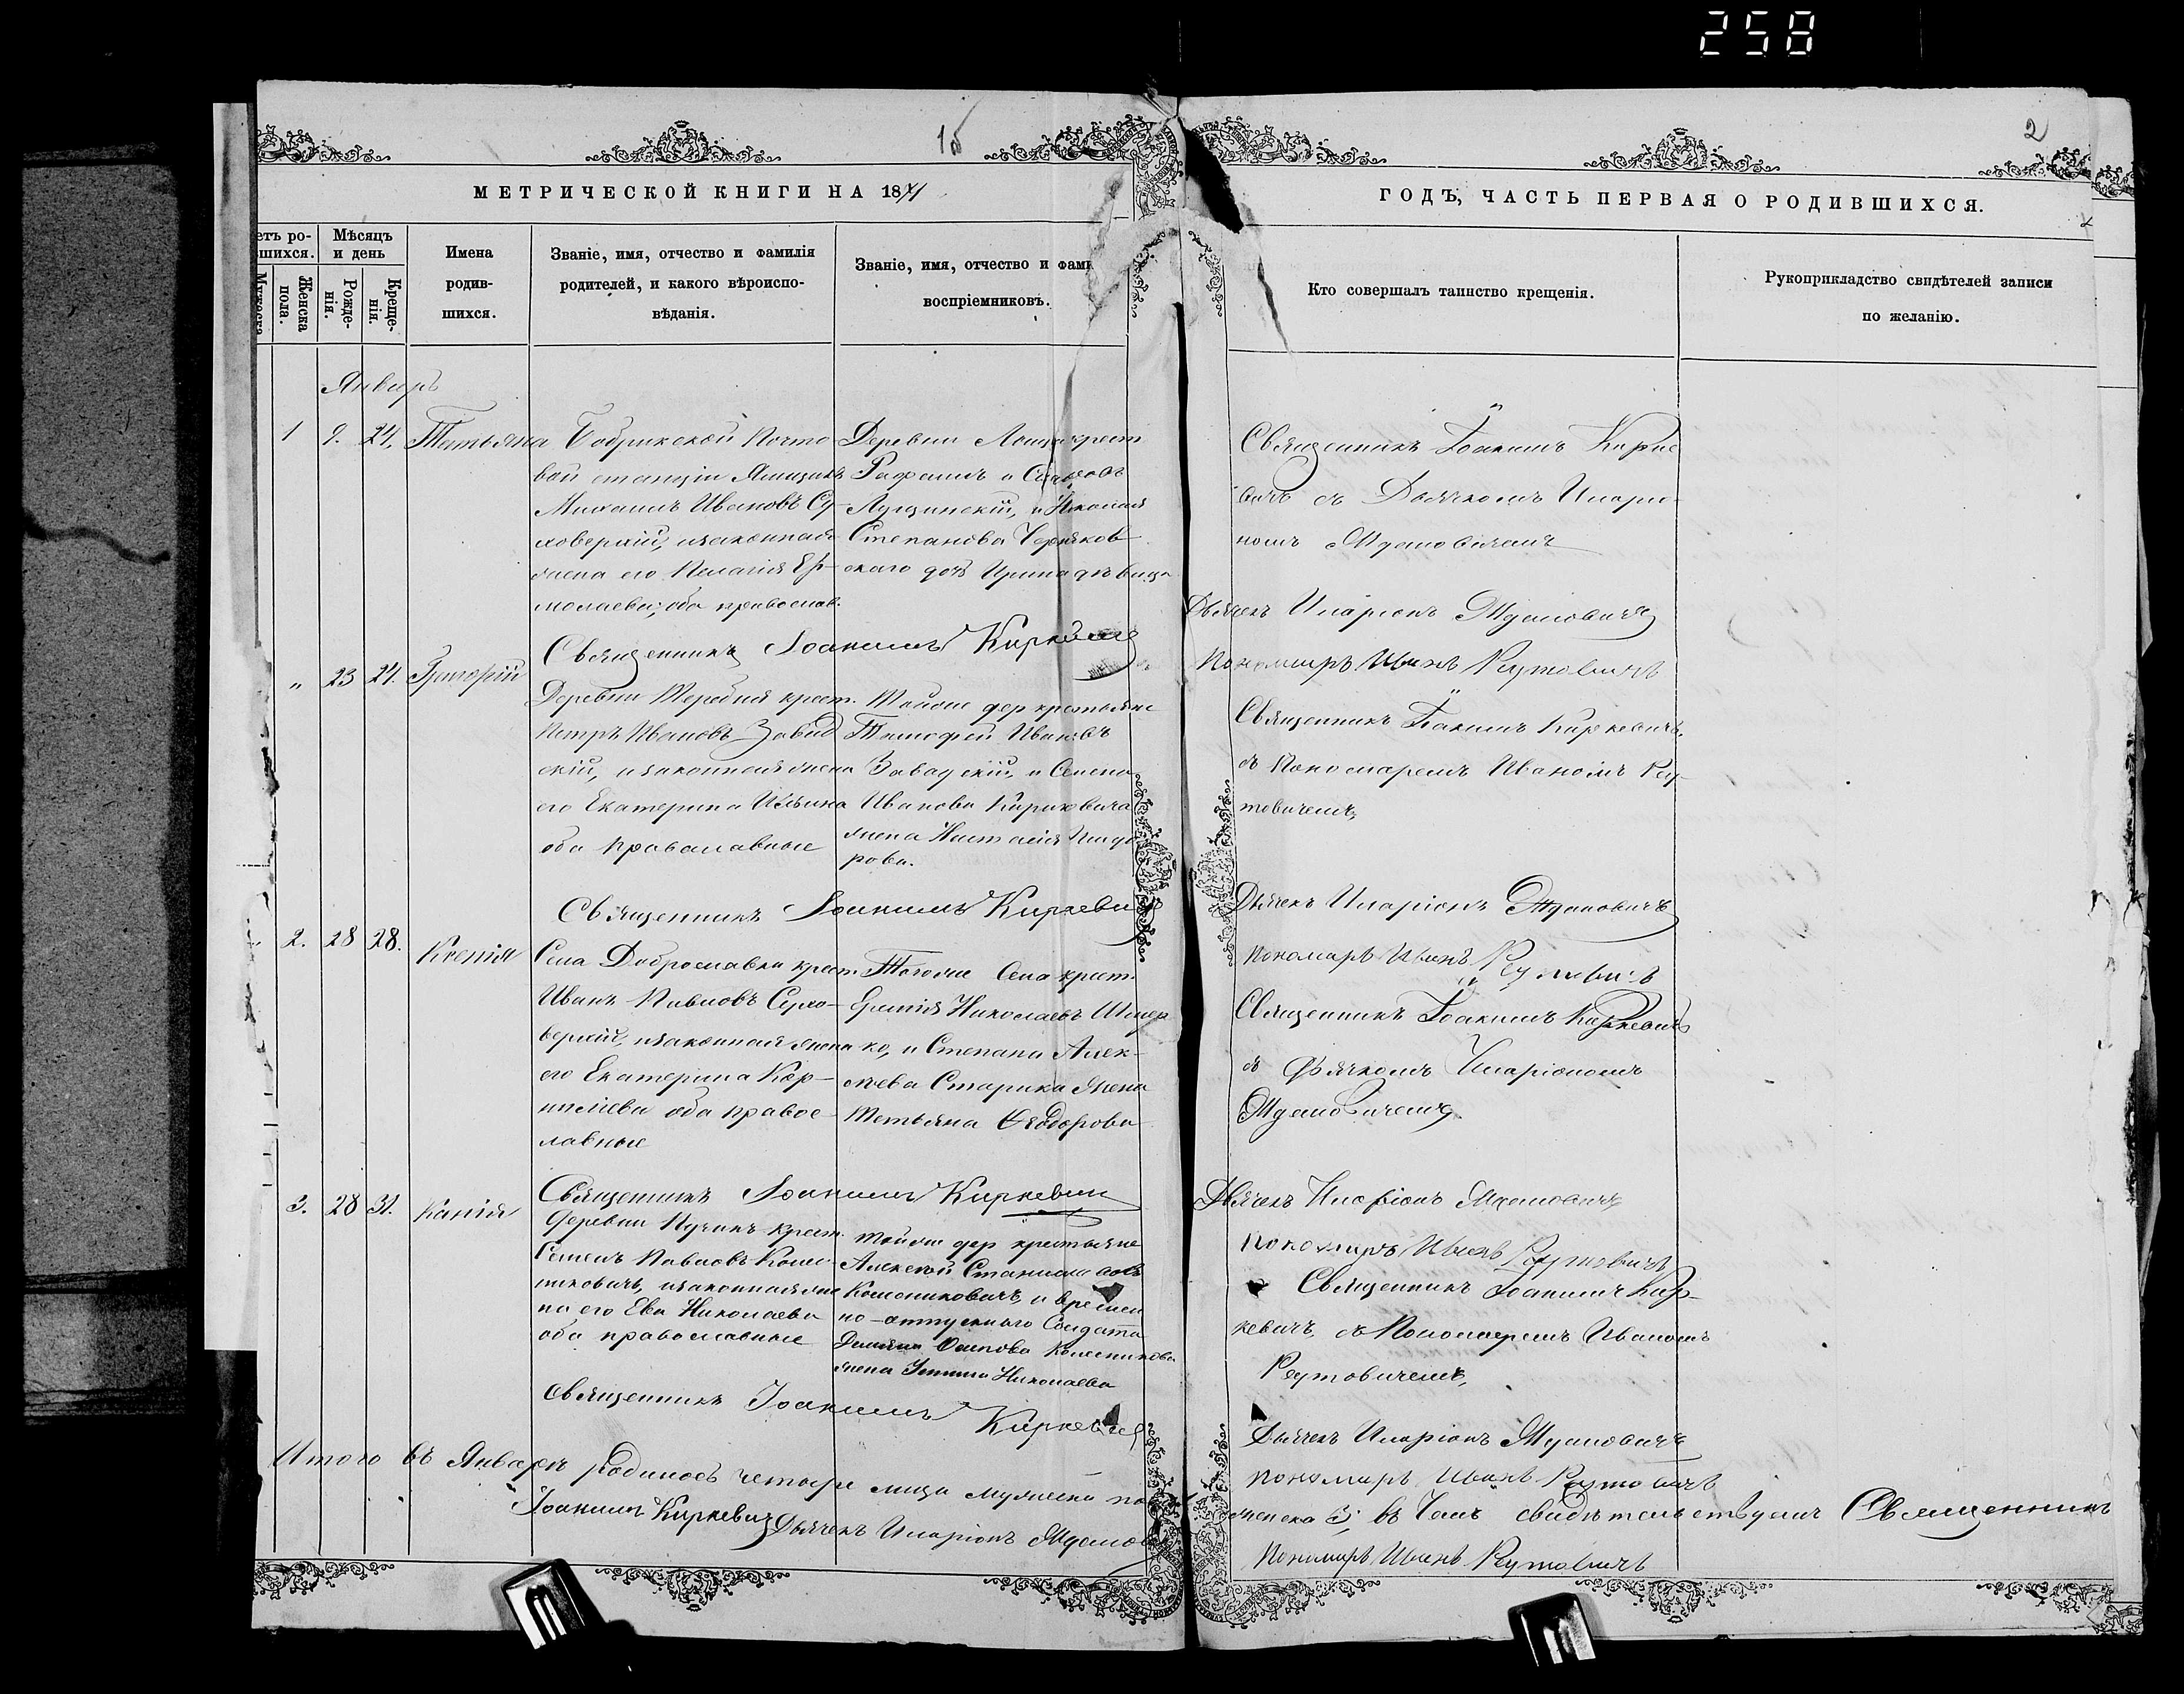 258
1б
2
МЕТРИЧЕСКОЙ КНИГИ НА 1871
ГОДЪ, ЧАСТЬ ПЕРВАЯ О РОДИВШИХСЯ.
етъ ро-
шихся.
Женска
пола.
Мѣсяцъ
и день
Рожде-
нія.
Креще-
нія.
Имена
родив-
шихся.
Званіе, имя, отчество и фамилія
родителей, и какого вѣроиспо-
вѣданія.
Званіе, имя, отчество и фами
воспріемниковъ.
Кто совершалъ таинство крещенія.
Рукоприкладство свидѣтелей записи
по желанію.
Январь
1 9. 24. Татьяна
Бобрикской Почто
вой станціи Ямщикъ
Михаилъ Ивановъ Су-
ховерхій, изаконная
жена его Пелагія Ер-
молаева; оба православ.
Деревни крест
Рафаилъ
Лущинскій, и Николая
Степанова Черняков
скаго дочь Ирина дѣвица
Священникъ Іоакимъ Кирке
вичъ съ Дьячкомъ Иларіо-
номъ Ждановичемъ
Священникъ Іоакимъ Киркевичъ
Дьячекъ Иларіонъ Ждановичъ
Пономарь Иванъ Реутовичъ
" 23 24. Григорій
Деревни Теребня крест.
Петръ Ивановъ Завад
скій, изаконная жена
его Екатерина Ильина
оба православные
Тойже дер крестьяне
Тимофей Ивановъ
Завадскій, и Семена
Иванова Кириковича
жена Настасія
рова.
Священникъ Іоакимъ Киркевичъ,
съ Пономаремъ Иваномъ Реу-
товичемъ,
Священникъ Іоакимъ Киркевичъ
Дьячекъ Иларіонъ Ждановичъ
Пономарь Иванъ Реутовичъ
2. 28 28. Ксенія
Села Доброславки крест.
Иванъ Павловъ Сухо-
верхій, изаконная жена
его Екатерина Кор-
ниліева оба правос-
лавные
Тогоже Села крест.
Николаевъ
ко, и Степана Алек-
сѣева Старика жена
Татьяна Ѳеодорова
Священникъ Іоакимъ Киркевичъ
съ Дьячкомъ Иларіономъ
Ждановичемъ.
Священникъ Іоакимъ Киркевичъ
Дьячекъ Иларіонъ Ждановичъ
Пономарь Иванъ Реутовичъ
3. 28 31. Ксенія
Деревни Пучинъ крест.
Семенъ Павловъ Колес-
никовичъ, изаконная же
на его Ева Николаева
оба православные
Тойже дер крестьяне
Алексѣй Станиславовъ
Колесниковичъ, и времен
но-отпускного Солдата
Осипова Колесникова
жена Николаева
Священникъ Іоакимъ Кир-
кевичъ, съ Пономаремъ Иваномъ
Реутовичемъ,
Священникъ Іоакимъ Киркевичъ
Дьячекъ Иларіонъ Ждановичъ
Пономарь Иванъ Реутовичъ
Итого въ Январѣ родилось четыре лица мужеска по
женска 3; въ чемъ свидѣтельствуемъ Священникъ
Іоакимъ Киркевичъ Дьячекъ Иларіонъ Жданов
Пономарь Иванъ Реутовичъ